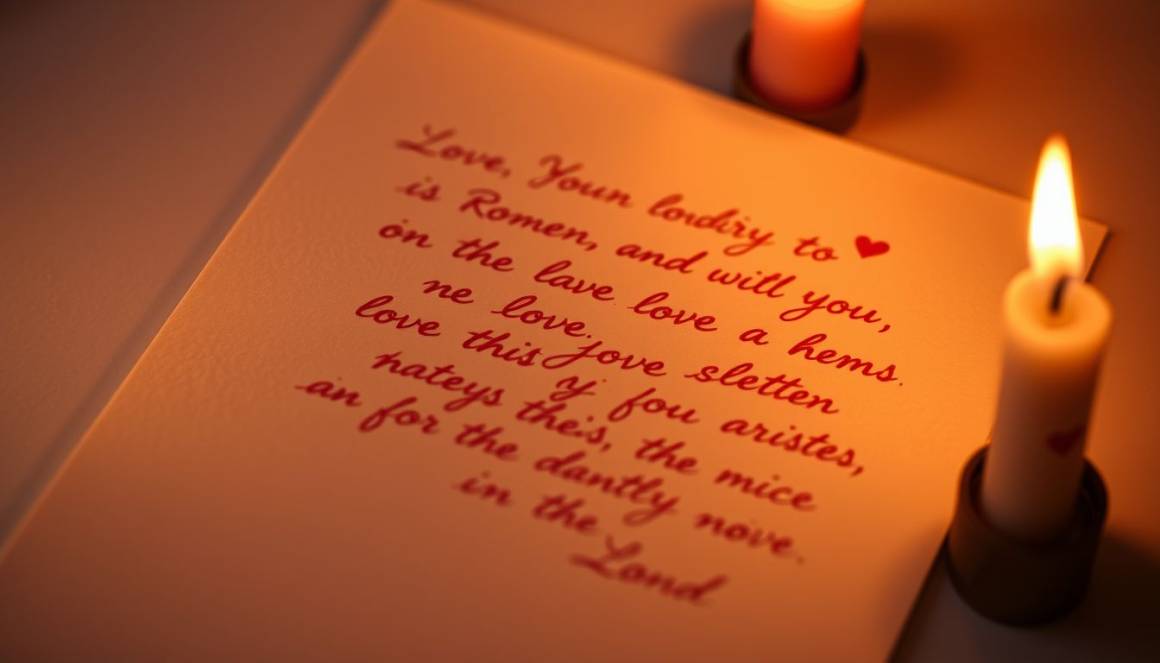 Love, Youn lordiry to ♥
is Romen, and will you,
on the lave love a hems.
ne love. Jove sletten
love this y' fou aristes,
nateys the's, the mice
an for the dantly nove.
in the
Lond